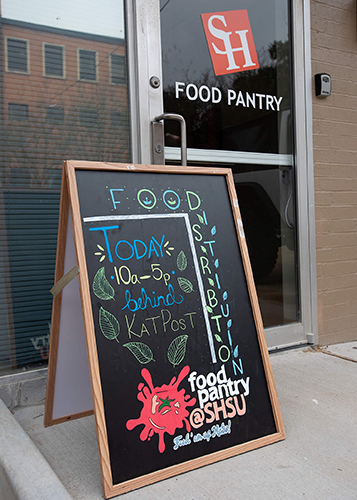 SH
FOOD PANTRY
FOOD
DISTRIBUTION
TODAY
10a-5p
behind
KATPOST
food
pantry
@SHSU